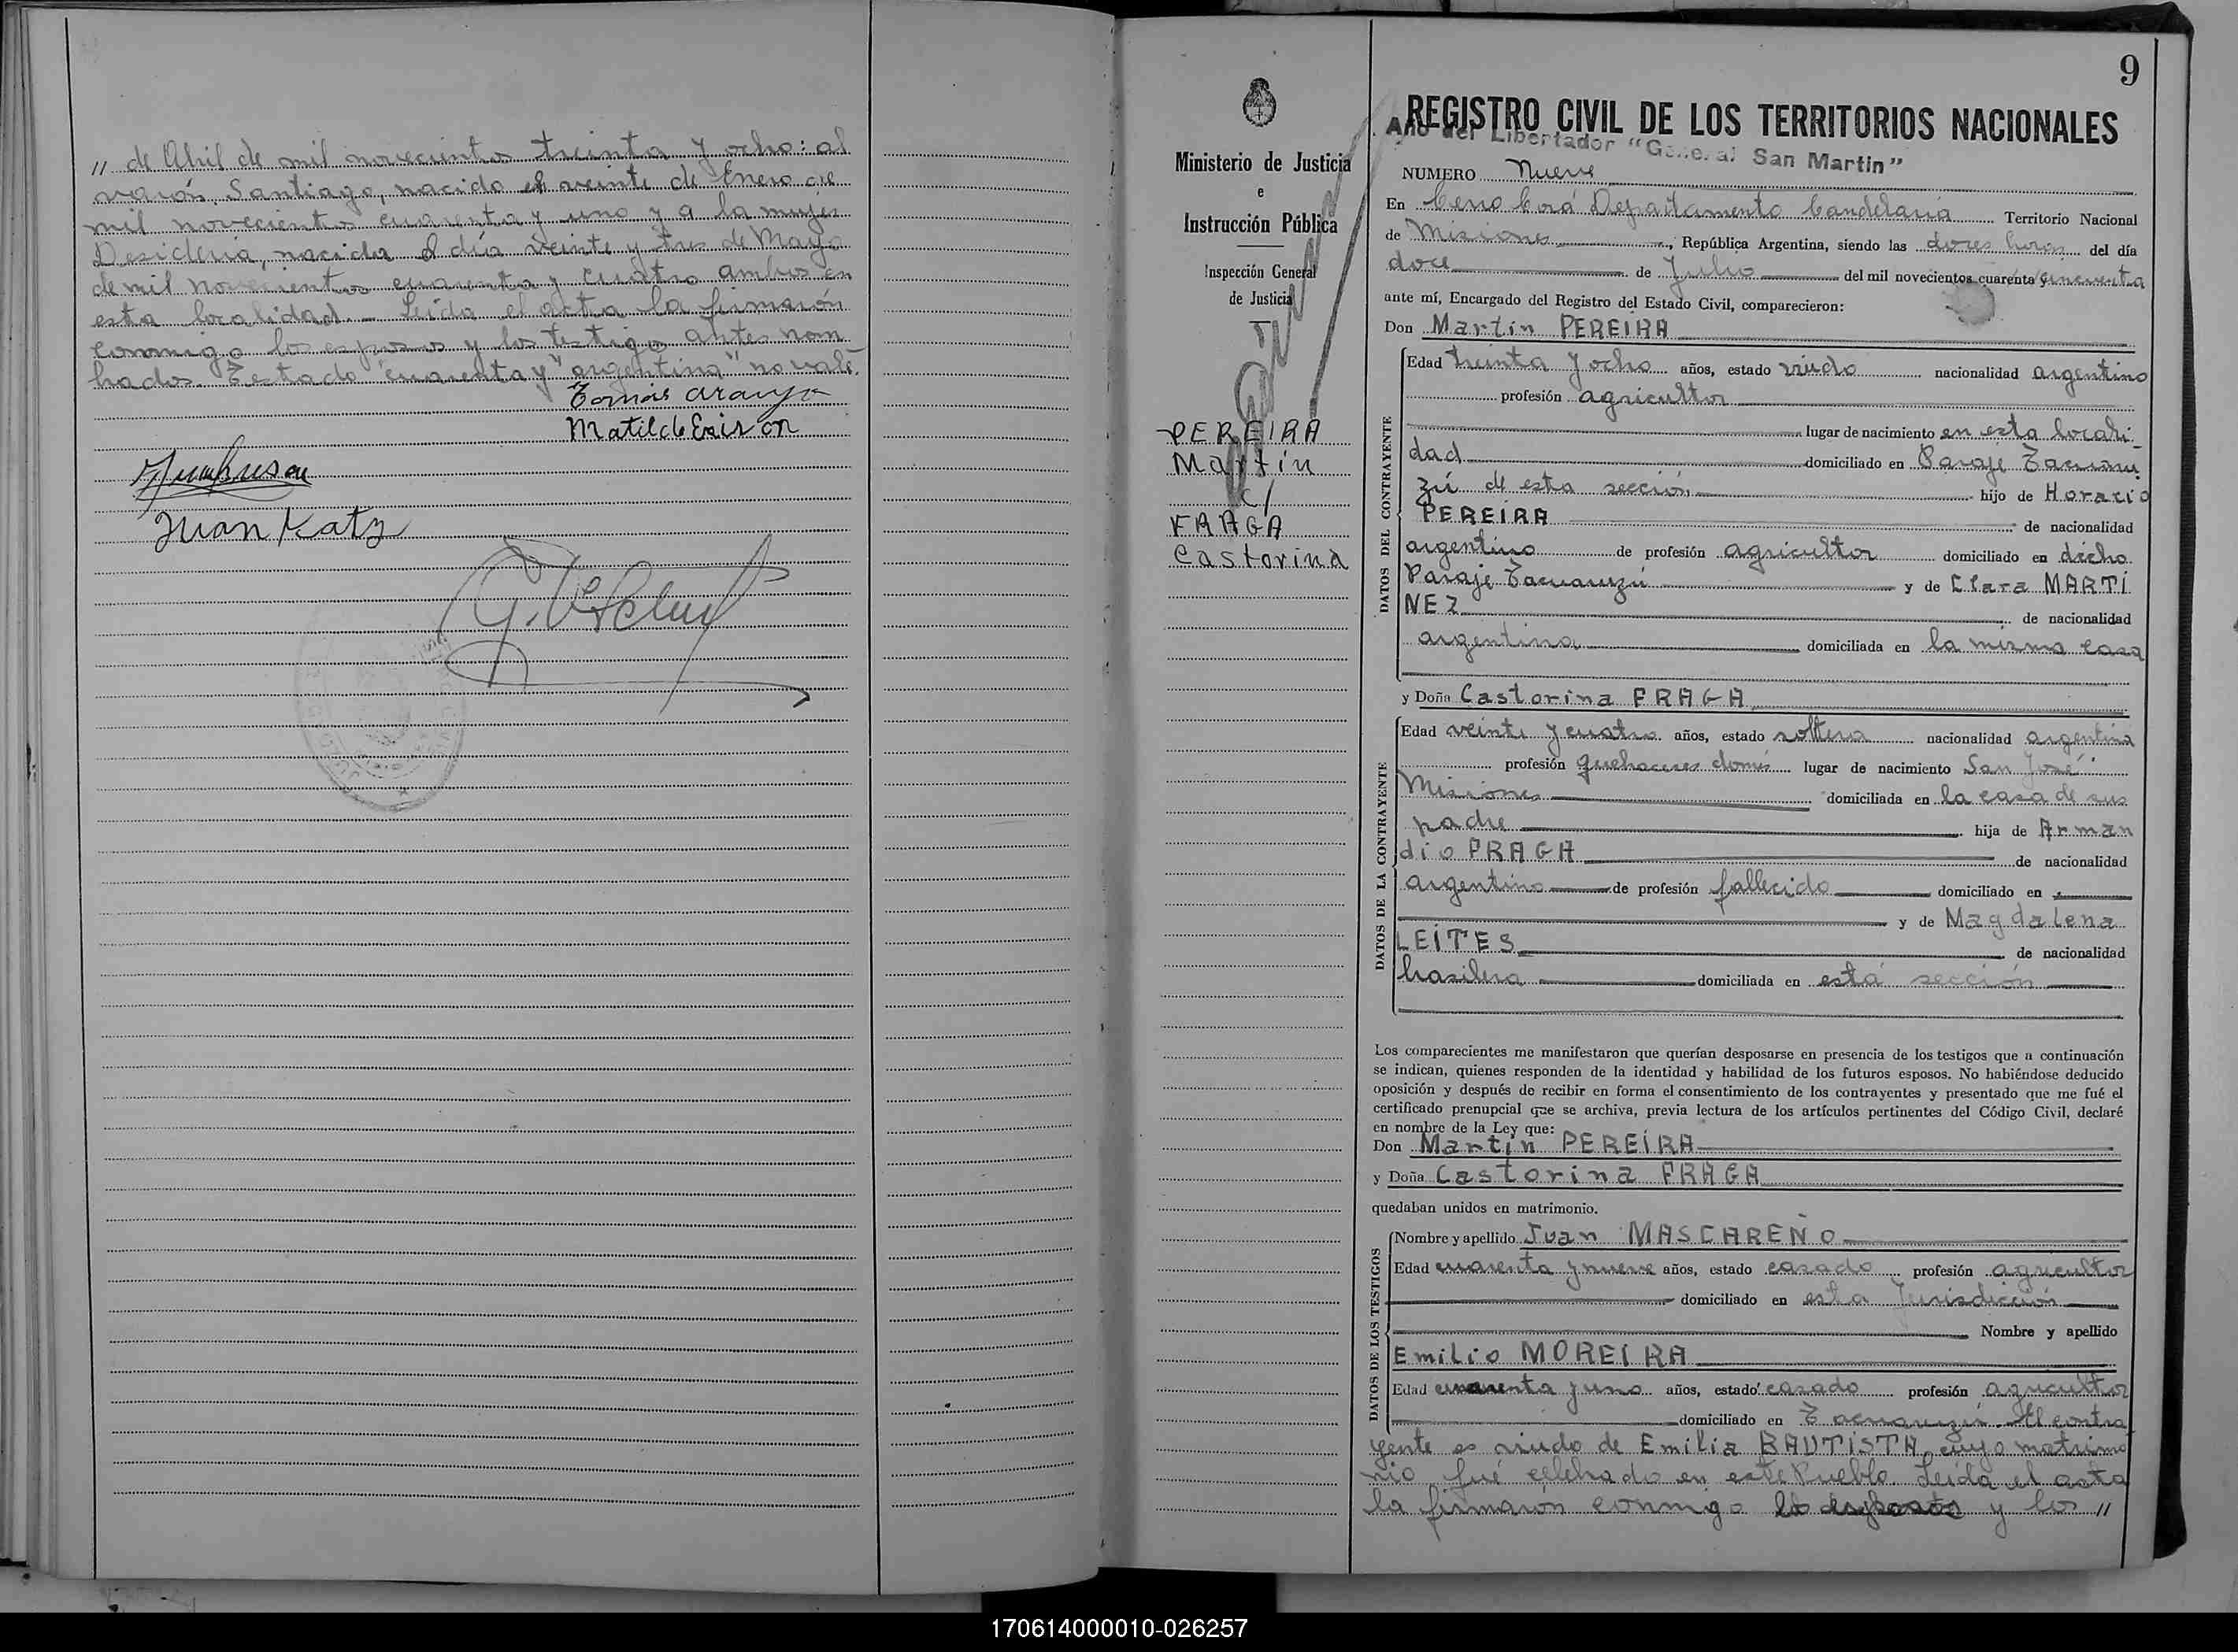 // de Abril de mil novecientos treinta y ocho: al
varón Santiago, nacido el veinte de Enero de
mil novecientos cuarenta y uno y a la mujer
Desideria, nacida el día veinte y tres de Mayo
de mil novecientos cuarenta y cuatro ambos en
esta localidad. - Leída el acta la firmaron
conmigo los esposos y los testigos antes nom
brados. Testado "cuarenta y" "argentina" no vale.
Tomás Araujo
Matilde
Juan Katz
9
Ministerio de Justicia
e
Instrucción Pública
Inspección General
de Justicia
PEREIRA
Martín
c/
FRAGA
Castorina
REGISTRO CIVIL DE LOS TERRITORIOS NACIONALES
Año del Libertador "General San Martín"
NUMERO Nueve
En Cerro Corá Departamento Candelaria Territorio Nacional
de Misiones, República Argentina, siendo las doces horas del día
doce de Julio del mil novecientos cuarenta y cincuenta
ante mí, Encargado del Registro del Estado Civil, comparecieron:
Don Martín PEREIRA
DATOS DEL CONTRAYENTE
Edad treinta y ocho años, estado viudo nacionalidad argentino
profesión agricultor
lugar de nacimiento en esta locali
dad domiciliado en Paraje Tacuaru
zú de esta sección hijo de Horacio
PEREIRA de nacionalidad
argentino de profesión agricultor domiciliado en dicho
Paraje Tacuaruzú y de Clara MARTÍ
NEZ de nacionalidad
argentina domiciliada en la misma casa
y Doña Castorina FRAGA
DATOS DE LA CONTRAYENTE
Edad veinte y cuatro años, estado soltera nacionalidad argentina
profesión quehaceres domés lugar de nacimiento San José
Misiones domiciliada en la casa de sus
padre hija de Arman
dio FRAGA de nacionalidad
argentino de profesión fallecido domiciliado en
y de Magdalena
LEITES de nacionalidad
brasilera domiciliada en está sección
Los comparecientes me manifestaron que querían desposarse en presencia de los testigos que a continuación
se indican, quienes responden de la identidad y habilidad de los futuros esposos. No habiéndose deducido
oposición y después de recibir en forma el consentimiento de los contrayentes y presentado que me fué el
certificado prenupcial que se archiva, previa lectura de los artículos pertinentes del Código Civil, declaré
en nombre de la Ley que:
Don Martín PEREIRA
y Doña Castorina FRAGA
quedaban unidos en matrimonio.
DATOS DE LOS TESTIGOS
Nombre y apellido Juan MASCAREÑO
Edad cuarenta y nueve años, estado casado profesión agricultor
domiciliado en esta Jurisdicción
Nombre y apellido
Emilio MOREIRA
Edad cuarenta y uno años, estado casado profesión agricultor
domiciliado en Tacuaruzú. El contra
yente es viudo de Emilia BAUTISTA, cuyo matrimo
nio fué celebrado en este Pueblo. Leída el acta
la firmaron conmigo los esposos y los //
170614000010-026257